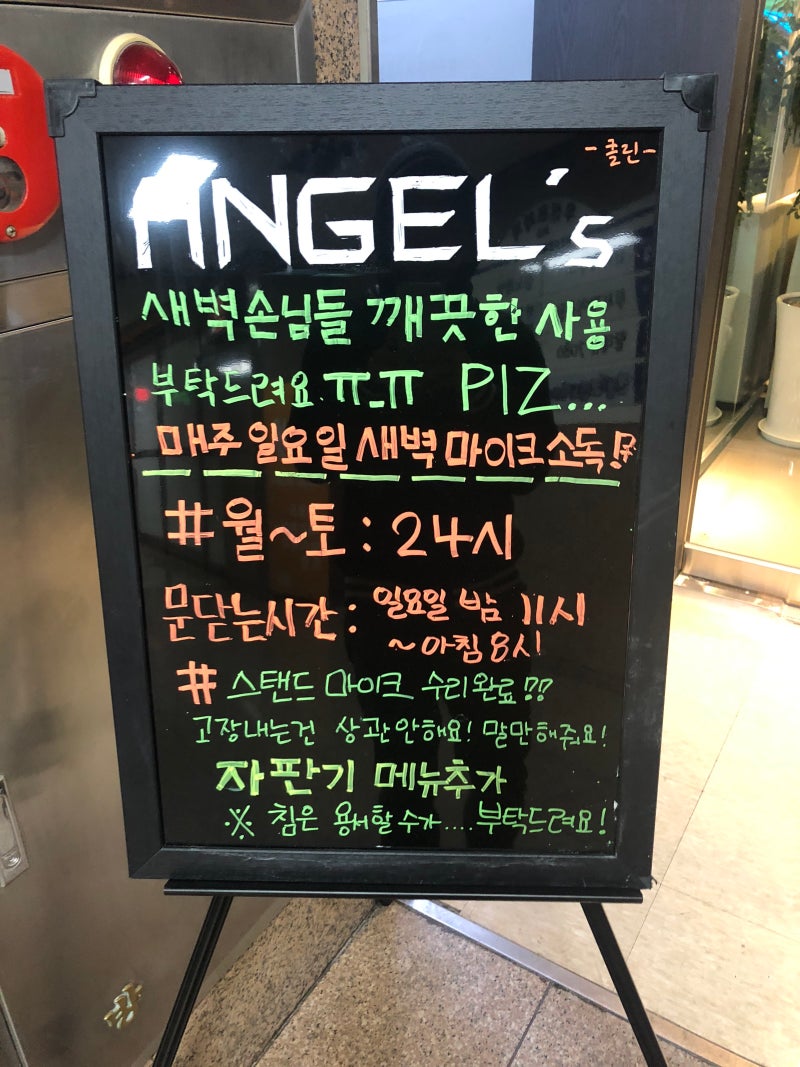 -클린-
ANGEL's
새벽손님들 깨끗한 사용
부탁드려요 ㅠ_ㅠ PlZ...
매주 일요일 새벽 마이크 소독!!
#월~토 : 24시
문닫는시간 : 일요일 밤 11시
~아침 8시
# 스탠드 마이크 수리완료!!
고장내는건 상관안해요! 말만해줘요!
자판기 메뉴추가
※ 침은 용서할수가....부탁드려요!